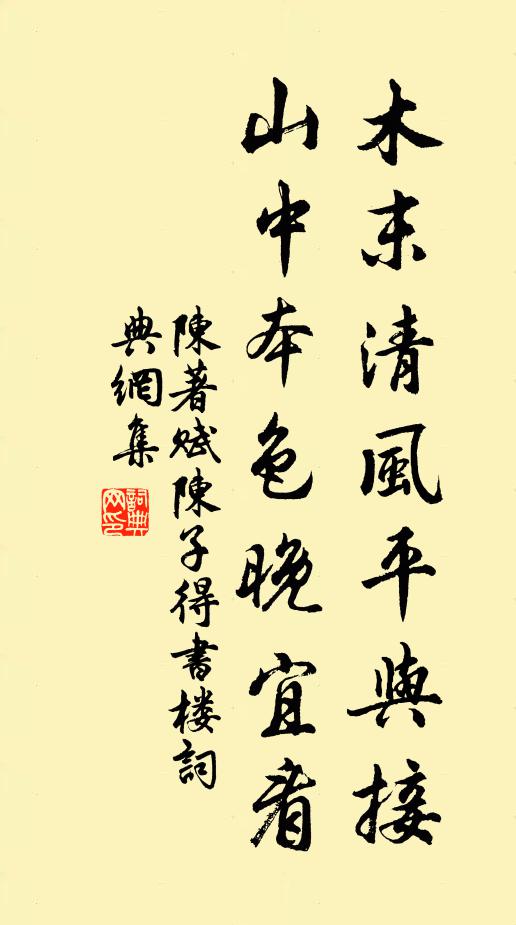 木末清風平與接
山中本色晚宜看
陳著賦陳子得書樓詞
典網集
詞典
网印